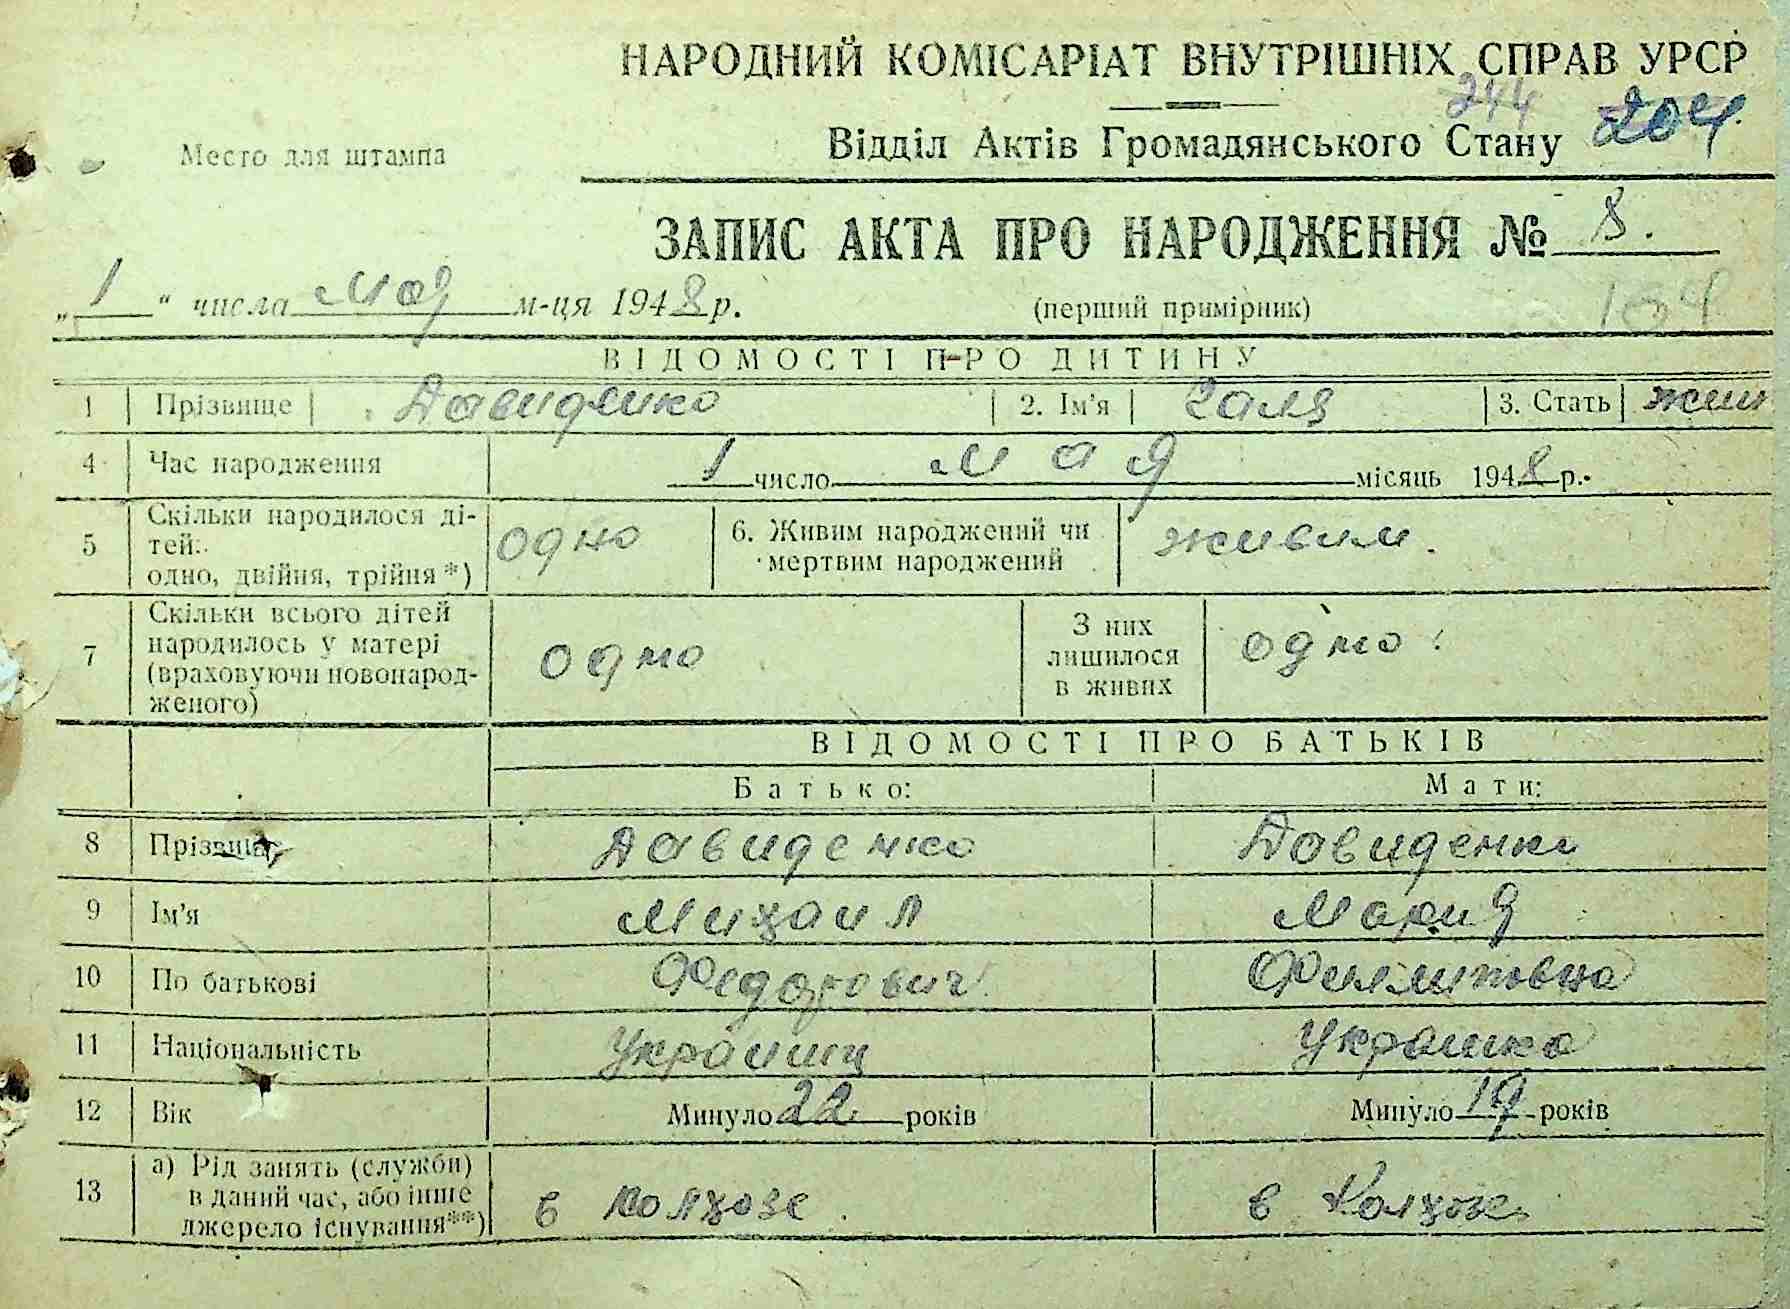 НАРОДНИЙ КОМІСАРІАТ ВНУТРІШНІХ СПРАВ УРСР
244 204
Відділ Актів Громадянського Стану
Место для штампа
ЗАПИС АКТА ПРО НАРОДЖЕННЯ № 8.
„1“ числа мая м-ця 1948 р. (перший примірник) 104
ВІДОМОСТІ ПРО ДИТИНУ
1 Прізвище Давиденко 2. Ім'я Галя 3. Стать жін
4 Час народження 1 число мая місяць 1948 р.
5 Скільки народилося ді-
тей:
одно, двійня, трійня *) одно 6. Живим народжений чи
мертвим народжений живим.
7 Скільки всього дітей
народилось у матері
(враховуючи новонарод-
женого) одно З них
лишилося
в живих одно.
ВІДОМОСТІ ПРО БАТЬКІВ
Батько: Мати:
8 Прізвище Давиденко Давиденко
9 Ім'я Михаил Мария
10 По батькові Федорович Филиповна
11 Національність Украинц Украинка
12 Вік Минуло 22 років Минуло 19 років
13 а) Рід занять (служби)
в даний час, або інше
джерело існування**) в колхозе. в Колхозе